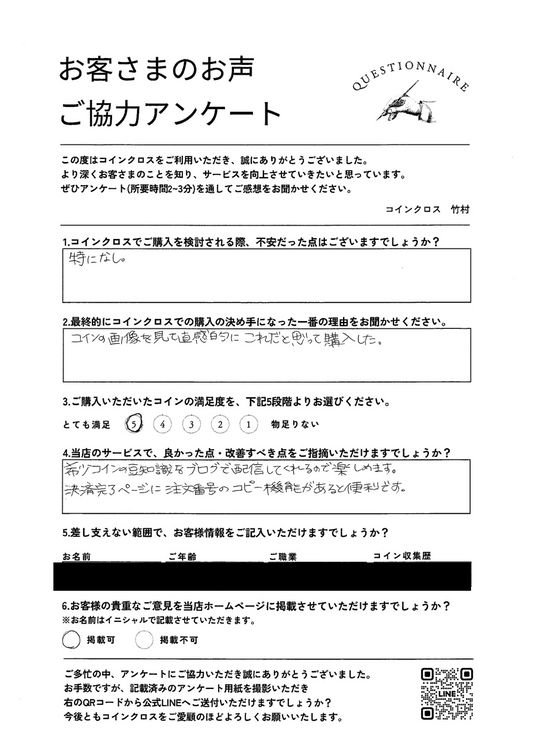 お客さまのお声
ご協力アンケート
QUESTIONNAIRE
この度はコインクロスをご利用いただき、誠にありがとうございました。
より深くお客さまのことを知り、サービスを向上させていきたいと思っています。
ぜひアンケート(所要時間2~3分)を通してご感想をお聞かせください。
コインクロス 竹村
1.コインクロスでご購入を検討される際、不安だった点はございますでしょうか？
特になし。
2.最終的にコインクロスでの購入の決め手になった一番の理由をお聞かせください。
コインの画像を見て直感的にこれだと思って購入した。
3.ご購入いただいたコインの満足度を、下記5段階よりお選びください。
とても満足 5 4 3 2 1 物足りない
4.当店のサービスで、良かった点・改善すべき点をご指摘いただけますでしょうか？
希少コインの豆知識をブログで配信してくれるので楽しめます。
決済完了ページに注文番号のコピー機能があると便利です。
5.差し支えない範囲で、お客様情報をご記入いただけますでしょうか？
お名前 ご年齢 ご職業 コイン収集歴
6.お客様の貴重なご意見を当店ホームページに掲載させていただけますでしょうか？
※お名前はイニシャルで記載させていただきます。
掲載可 掲載不可
ご多忙の中、アンケートにご協力いただき誠にありがとうございました。
お手数ですが、記載済みのアンケート用紙を撮影いただき
右のQRコードから公式LINEへご送付いただけますでしょうか？
今後ともコインクロスをご愛顧のほどよろしくお願いいたします。
LINE